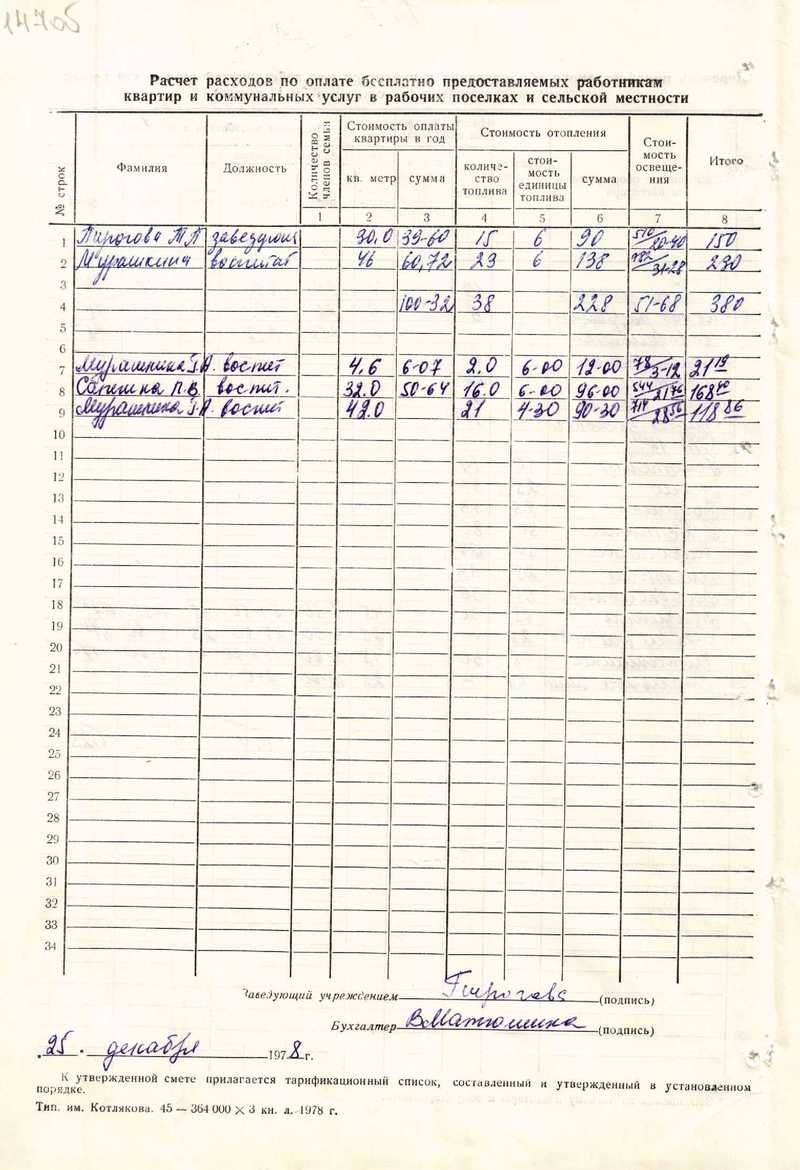 14706
Расчет расходов по оплате бесплатно предоставляемых работникам
квартир и коммунальных услуг в рабочих поселках и сельской местности
№ строк Фамилия Должность Количество членов семьи Стоимость оплаты квартиры в год Стоимость отопления Стоимость освещения Итого
кв. метр сумма количество топлива стоимость единицы топлива сумма
1 2 3 4 5 6 7 8
1 Пирогова Т.П заведующ 30,0 39-60 15 6 90 510/20-40 150
2 Мурашкина воспитат 46 60,72 23 6 138 782/31-28 230
3
4 100-32 38 228 51-68 380
5
6
7 Мурашкина воспит 4,6 6-07 2,0 6-00 12-00 78/3-12 21 19
8 П.В. воспит. 32,0 50-64 16,0 6-00 96-00 544/21 76 168 40
9 Мурашкина воспит 42,0 21 4-30 90-30 714/28 56 118 86
10
11
12
13
14
15
16
17
18
19
20
21
22
23
24
25
26
27
28
29
30
31
32
33
34
Заведующий учреждением Пирогова (подпись)
Бухгалтер ВМатюшина (подпись)
25. декабря 1978 г.
К утвержденной смете прилагается тарификационный список, составленный и утвержденный в установленном
порядке.
Тип. им. Котлякова. 45 — 364 000 × 3 кн. л. 1978 г.